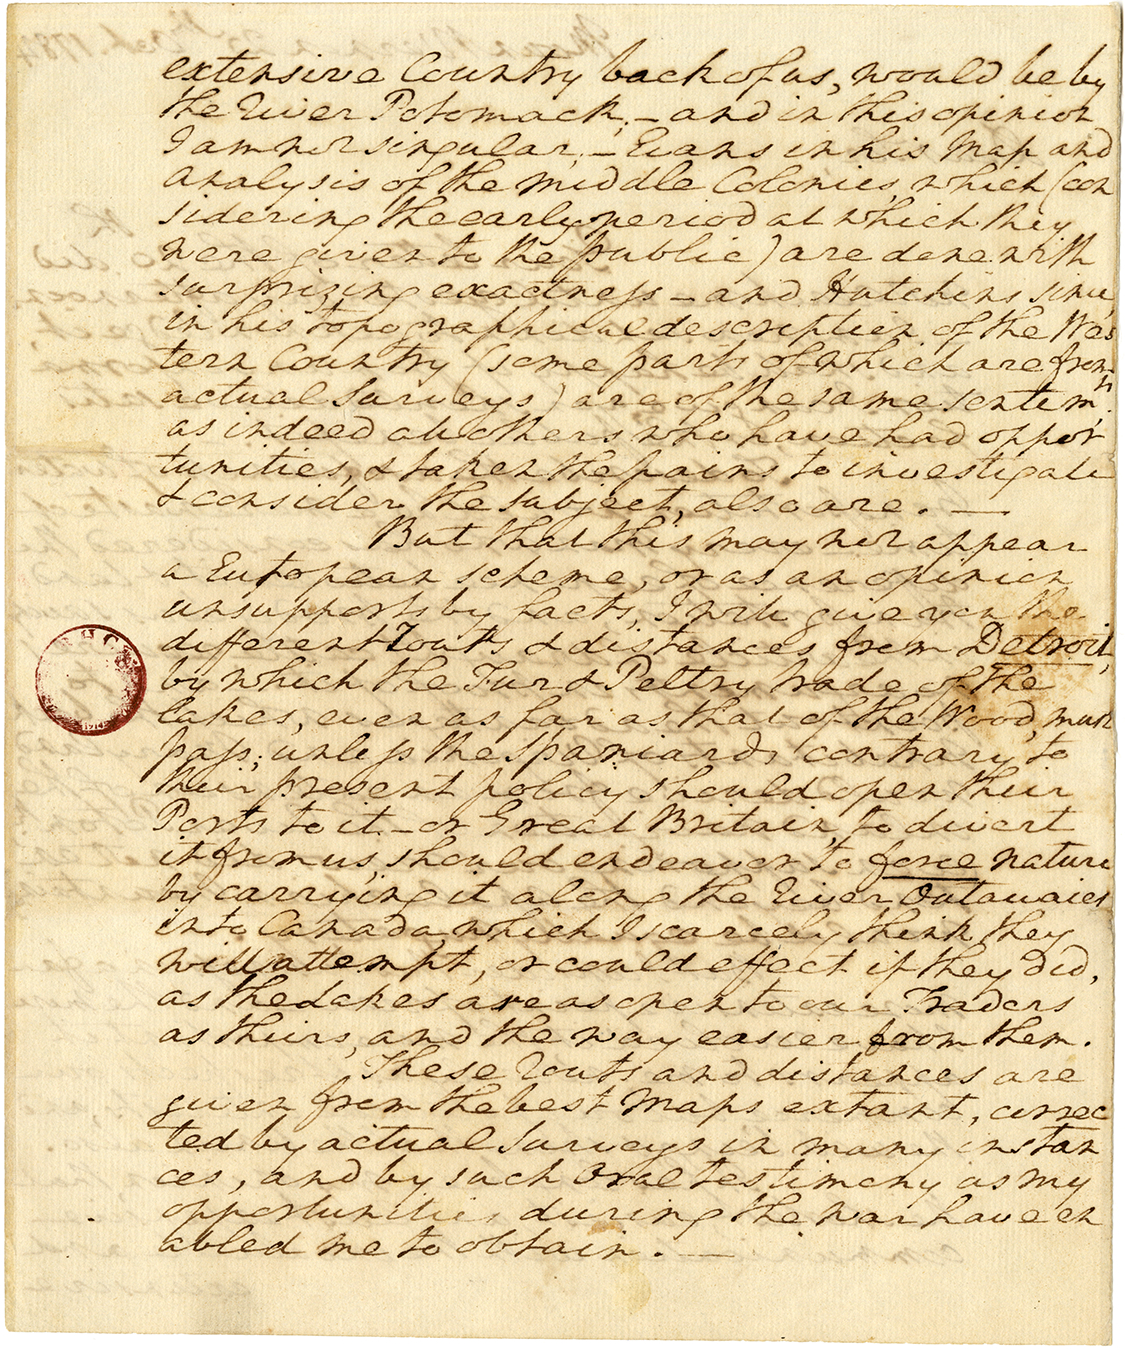 extensive Country back of us, would be by
the River Potomack; – and in this opinion
I am not singular; – Evans in his Map and
Analysis of the middle Colonies, which (con
sidering the early period at which they
were given to the public) are done with
surprizing exactness – and Hutchins since,
in his topographical description of the Wes
tern Country (some parts of which are from
actual Surveys) are of the same sentimts.
as indeed all others who have had oppor
tunities, & taken the pains to investigate
& consider the subject, also are. —
But that this may not appear
a European scheme, or as an opinion
unsupports by facts, I will give you the
different Routs & distances from Detroit,
by which the Fur & Peltry trade of the
lakes, even as far as that of the Wood, must
pass; unless the Spaniards contrary to
their present policy should open their
Ports to it – or Great Britain, to divert
it from us, should endeavor, to force nature
by carrying it along the River Outauaies
into Canada, which I scarcely think they
will attempt, or could effect if they did,
as the Lakes are as open to our Traders
as theirs, and the way easier from them.
These Routs and distances are
given from the best Maps extant, correc
ted by actual Surveys in many instan
ces, and by such Oral testimony as my
opportunities during the war have en
abled me to obtain. —